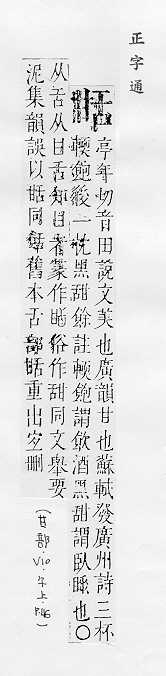 正字通
甛
亭年切音田說文美也廣韻甘也蘇軾發廣州詩三杯
輭飽後一枕黑甜餘註輭飽謂飲酒黑甜謂臥睡也〇
从舌从甘舌知甘者篆作甛俗作甜同文舉要
泥集韻誤以甛同舊本舌部甛重出宜刪
(甘部·V10·午上 P.46)